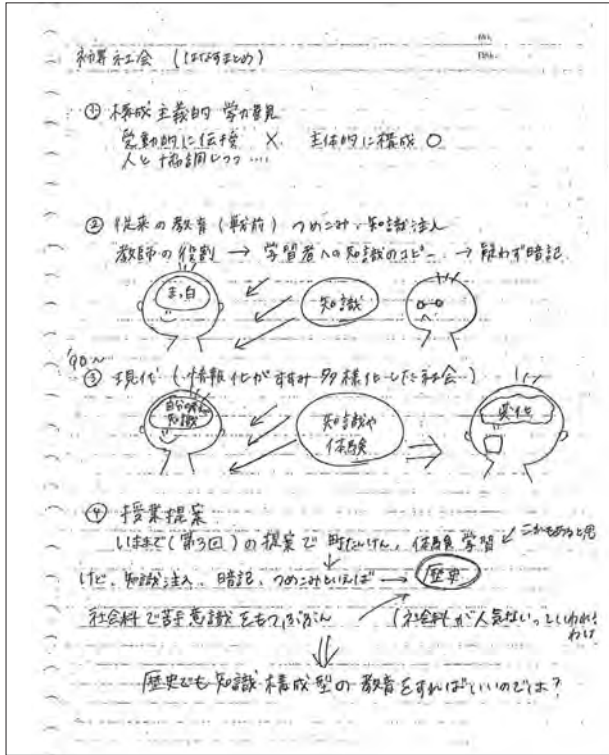 初等社会 (はなすまとめ)
① 構成主義的 学力観
受動的に伝授 × 主体的に構成 ○
人と協調しつつ ‥‥
② 従来の教育(戦前) つめこみ・知識注入
教師の役割 → 学習者への知識のコピー → 疑わず暗記
まっ白
知識
'90〜
③ 現代 (情報化がすすみ多様化した社会)
自分の
知識
知識や
体験
変化
④ 授業提案
いままで(第3回)の提案で 町たんけん, 体験学習
けど, 知識注入, 暗記, つめこみといえば → 歴史
社会科で苦手意識をもつぶぶん
(社会科が人気ないっていわれる
歴史でも知識構成型の教育をすればいいのでは?